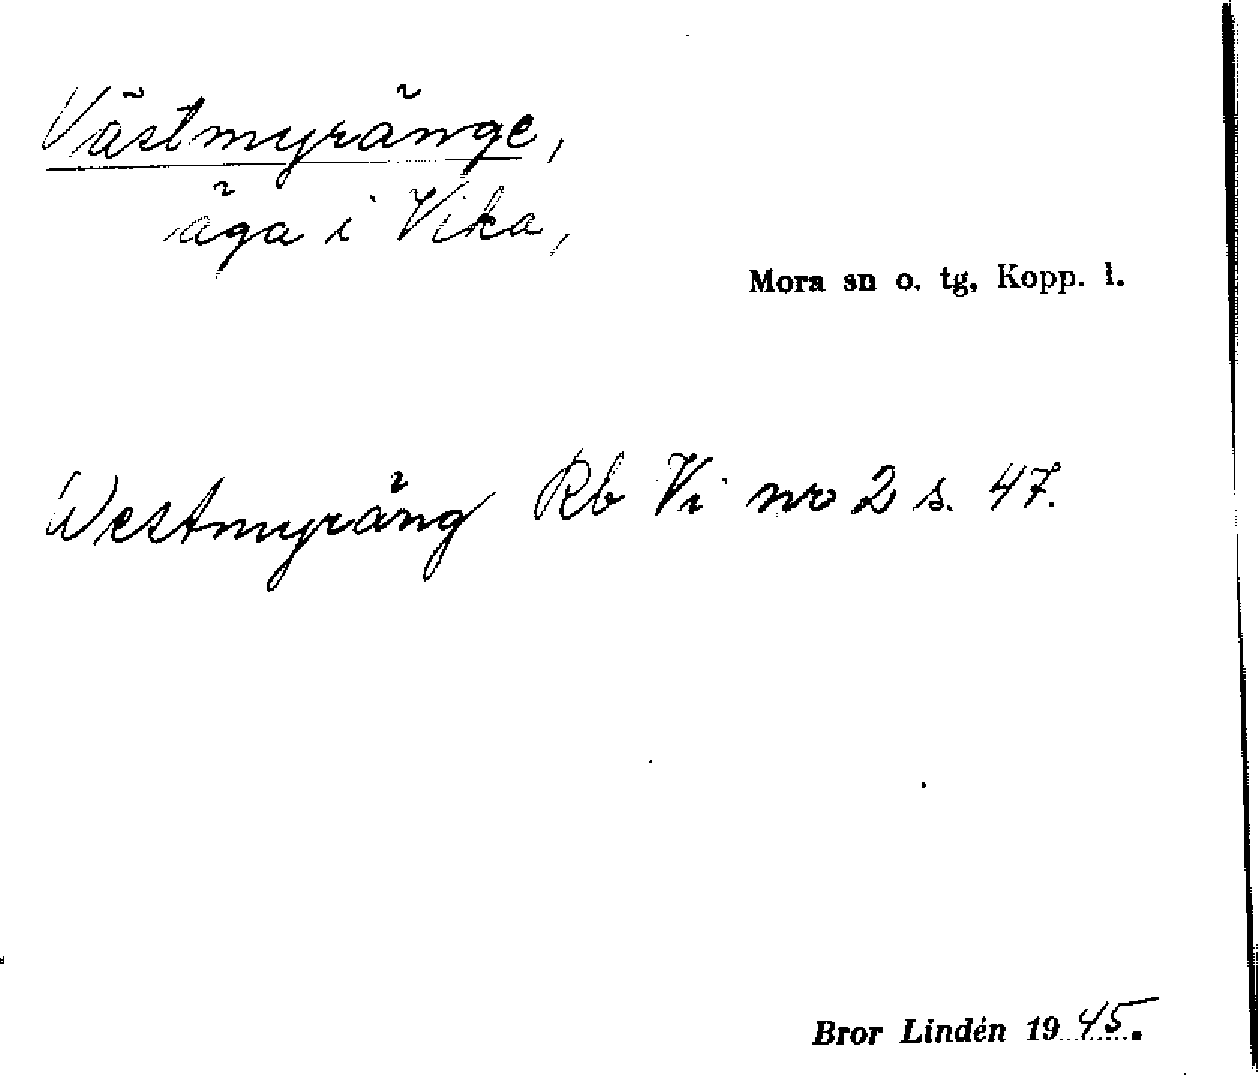 Västmyränge,
äga i Vika,
Mora sn o. tg, Kopp. l.
Westmyräng Rb Vi no 2 s. 47.
Bror Lindén 1945.